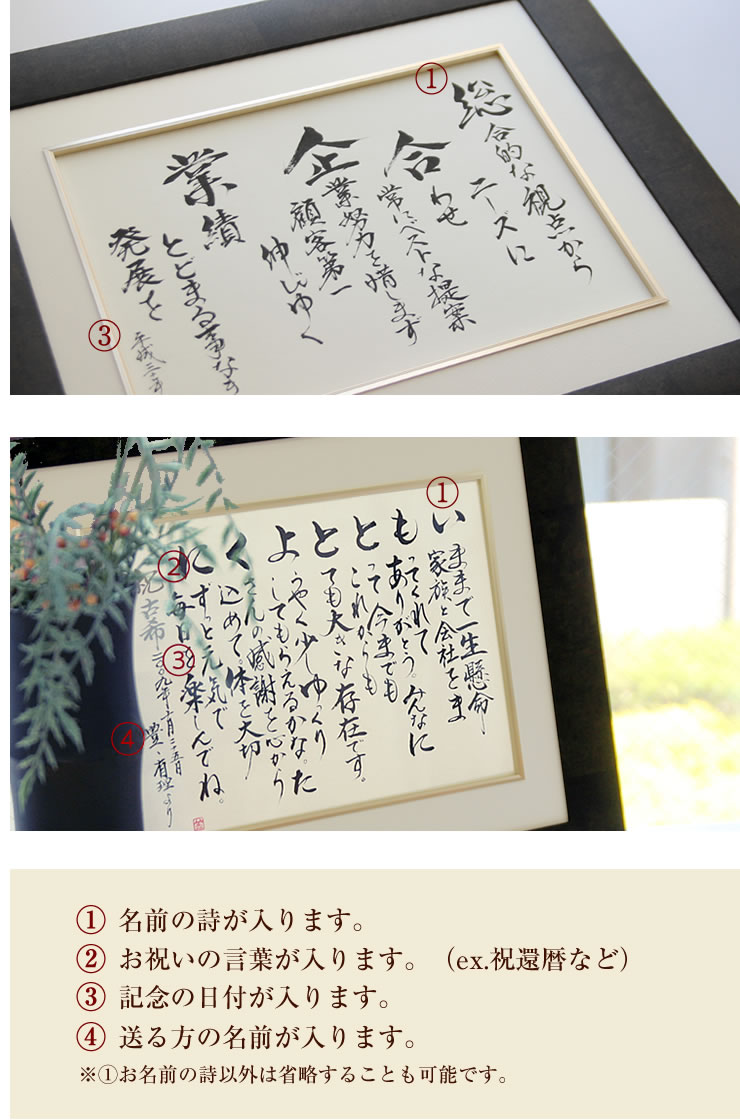 ①
総合的な視点から
ニーズに
合わせ
常にベストな提案
企業努力を惜しまず
顧客第一
伸びゆく
業績
とどまる事なき
発展を
③
①
いままで一生懸命
家族と会社をま
もってくれて
ありがとう。みんなに
とって今までも
これからも
とても大きな存在です。
ようやく少しゆっくり
してもらえるかな。た
くさんの感謝を心から
込めて体を大切
にずっと元気で
毎日を楽しんでね。
②
祝古希
③
④
豊・有理より
① 名前の詩が入ります。
② お祝いの言葉が入ります。（ex.祝還暦など）
③ 記念の日付が入ります。
④ 送る方の名前が入ります。
※①お名前の詩以外は省略することも可能です。